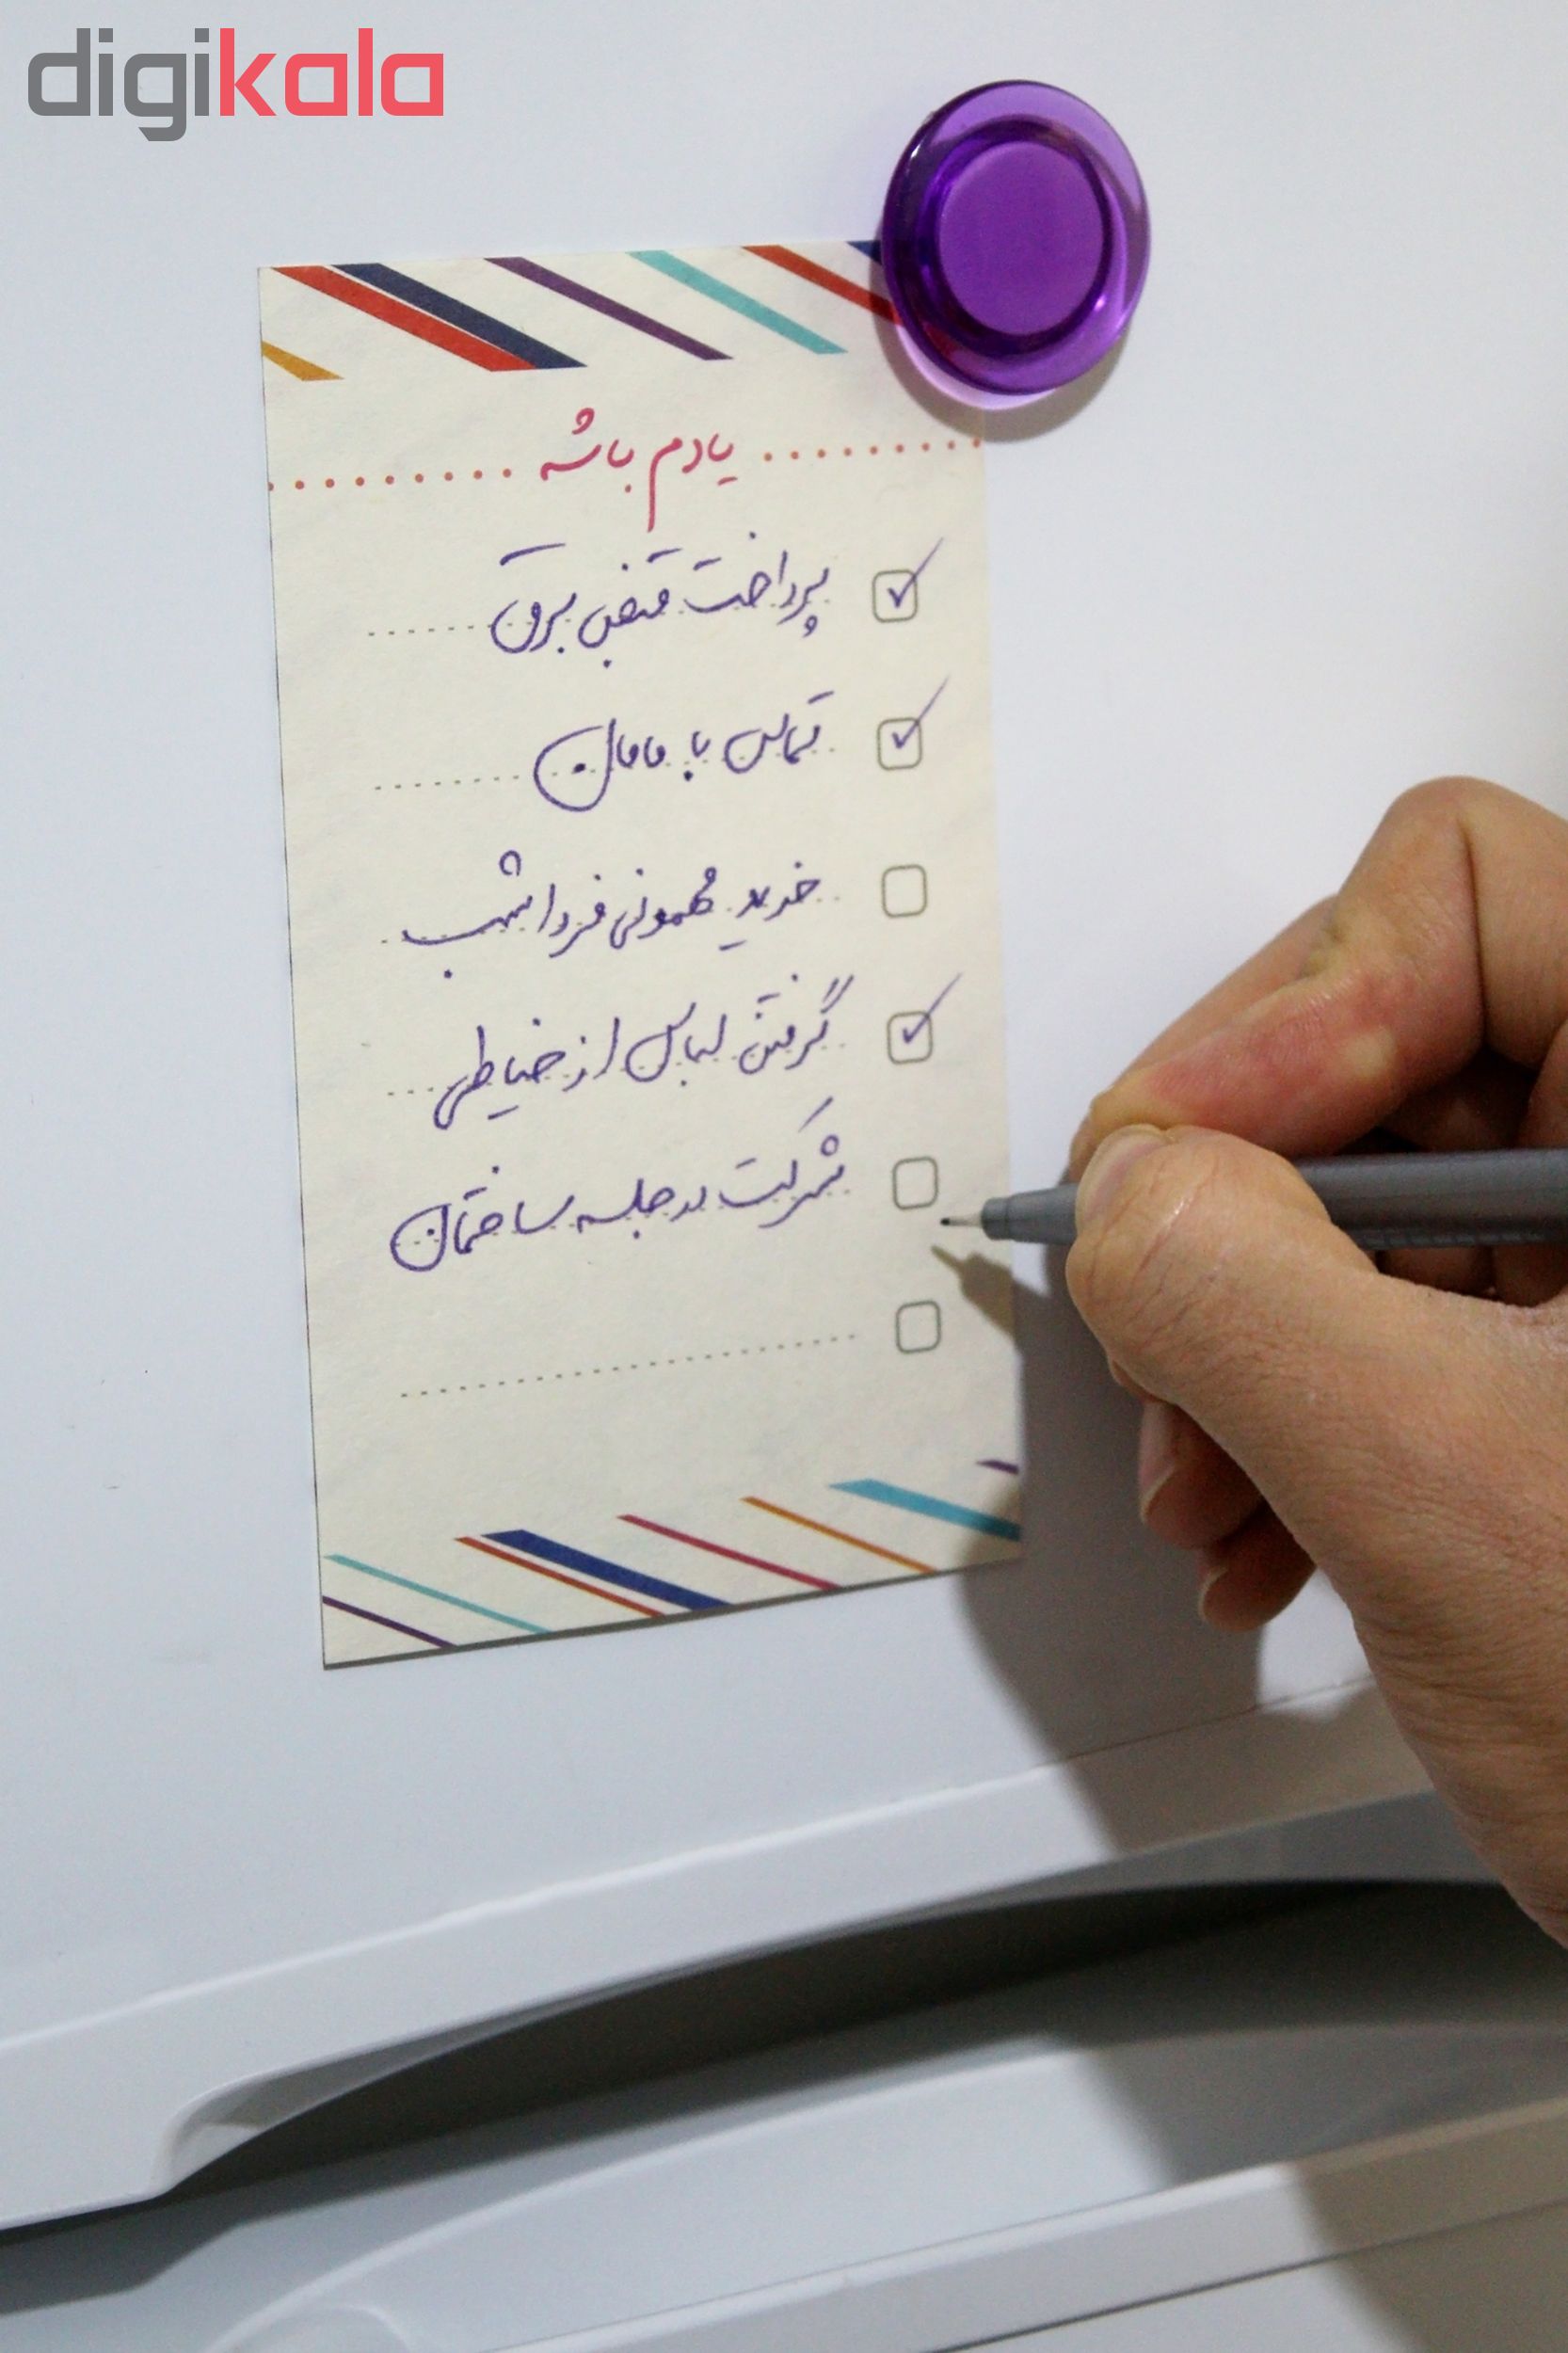 digikala
یادم باشه
پرداخت قبض برق
تماس با مامان
خرید مهمونی فردا شب
گرفتن لباس از خیاطی
شرکت در جلسه ساختمان